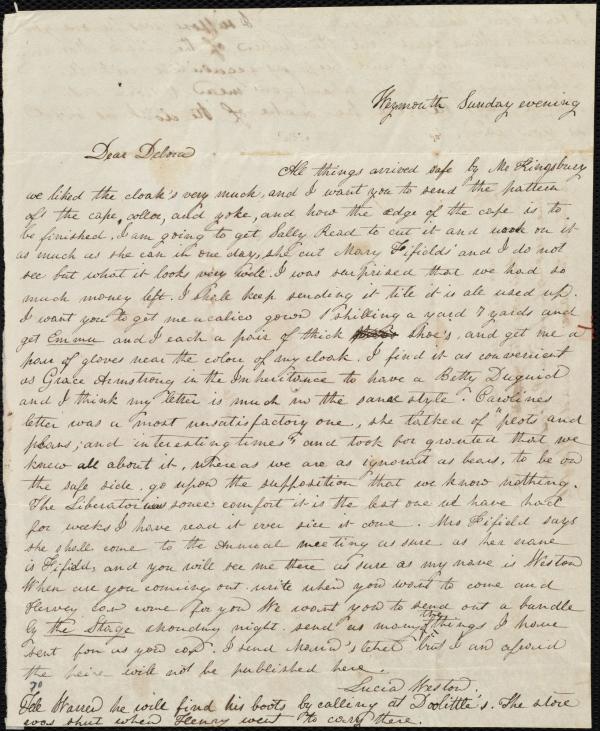 Weymouth Sunday evening
Dear Debora
All things arrived safe by Mr Kingsbury
we liked the cloak's very much, and I want you to send the pattern
of the cape, coller, and yoke, and how the edge of the cape is to
be finished, I am going to get Sally Read to cut it and work on it
as much as she can in one day, she cut Mary Fifields' and I do not
see but what it looks very well. I was surprised that we had so
much money left. I shale keep sending it tile it is ale used up.
I want you to get me a calico gown 1 shilling a yard 7 yards and
get Emma and I each a pair of thick shoe's, and get me a
pair of gloves near the colour of my cloak. I find it as convenient
as Grace Armstrong in the Inheritance to have a Betty Duguid
and I think my letter is much in the same style. Carolines
letter was a most unsatisfactory one, she talked of "plots and
plans, and interesting times", and took for granted that we
knew all about it, whereas we are as ignorant as bears, to be on
the safe side. go upon the supposition that we know nothing.
The Liberator was some comfort it is the last one we have had
for weeks I have read it ever sice it come. Mrs Fifield says
she shall come to the Annual meeting as sure as her name
is Fifield, and you will see me there as sure as my name is Weston
When are you comming out. write when you want to come and
Hervey can come for you We want you to send out a bundle
by the Stage monday night. send as many of the things I have
sent for as you can. I send Maria's letter but I am afraid
the heirs will not be published here.
Lucia Weston
Tele Warren he will find his boots by calling at Doolittle's. The store
was shut when Henry went to carry there.